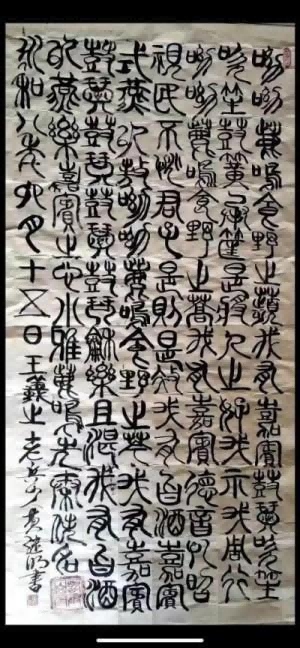 呦呦鹿鳴食野之蘋我有嘉賓鼓瑟吹笙
吹笙鼓簧承筐是將人之好我示我周行
呦呦鹿鳴食野之蒿我有嘉賓德音孔昭
視民不恌君子是則是傚我有旨酒嘉賓
式燕以敖呦呦鹿鳴食野之芩我有嘉賓
鼓瑟鼓琴鼓瑟鼓琴龢樂且湛我有旨酒
以燕樂嘉賓之心小雅鹿鳴
永和八年卯月十五日王羲之書